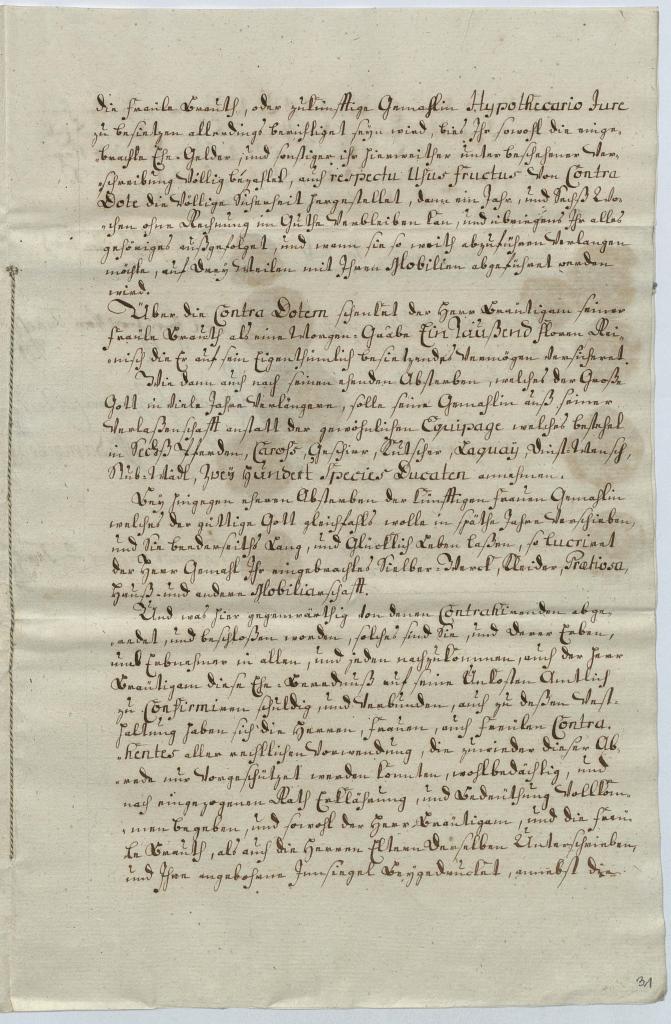 die Freüle Brauth, oder zukünfftige Gemahlin Hypothecario Jure
zu besietzen allerdings berechtiget seyn wird, bies Ihr sowohl die einge-
brachte Ehe-Gelder, und sonstiger ihr hierweither unter beschehener Ver-
schreibung völlig bezahlet, auch respectu Usus fructus von Contra
Dote die völlige Sicherheit hergestellet, dann ein Jahr, und Sechß Wo-
chen ohne Rechnung im Guthe verbleiben kan, und übriegens Ihr alles
gehöriges außgefolget, und wann sie so weith abzuführen verlangen
möchte, auf Drey Meilen mit Ihren Mobilien abgeführet werden
wird.
Über die Contra Dotem schenket der Herr Bräutigam seiner
Freüle Brauth als eine Morgen-Gaabe Ein Taußend Floren Rei-
nisch die Er auf sein Eigenthümlich besietzendes Vermögen versicheret.
Wie dann auch nach seinen ehenden Absterben, welches der Große
Gott in viele Jahre verlängere, solle seine Gemahlin auß seiner
Verlaßenschafft anstatt der gewöhnlichen Equipage welches bestehet
in Sechß Pferden, Caross, Geschier, Kutscher, Laquay, Dinst-Mensch,
Stub-Mädl, Zwey Hundert Species Ducaten annehmen.
Bey hingegen eheren Absterben der künfftigen Frauen Gemahlin
welches der güttige Gott gleichfahls wolle in späthe Jahre verschieben,
und Sie beederseiths Lang, und Glücklich Leben laßen, so lucriret
der Herr Gemahl Ihr eingebrachtes Sielber-Werck, Kleider, Prætiosa,
Hauß- und andere Mobiliarschafft.
Und was hier gegenwärthig von denen Contrahirenden abge-
redet, und beschloßen worden, solches sind Sie, und derer Erben,
und Erbnehmer in allen, und jeden nachzukommen, auch der Herr
Bräutigam diese Ehe-Berednuß auf seine Unkosten Amtlich
zu Confirmiren schuldig, und verbunden, auch zu deßen Vest-
haltung haben sich die Herren, Frauen, auch Freülen Contra-
hentes aller rechtlichen Vorwendung, die zuwieder dieser Ab-
rede nur vorgeschützet werden könnten, wohlbedächtig, und
nach eingezogenen Rath Erklährung, und Bedeuthung Vollkom-
men begeben, und sowohl der Herr Bräutigam, und die Freü-
le Brauth, als auch die Herren Eltern Derselben Unterschrieben,
und Ihre angebohrne Innsiegel Beygedrucket, anniebst die
31